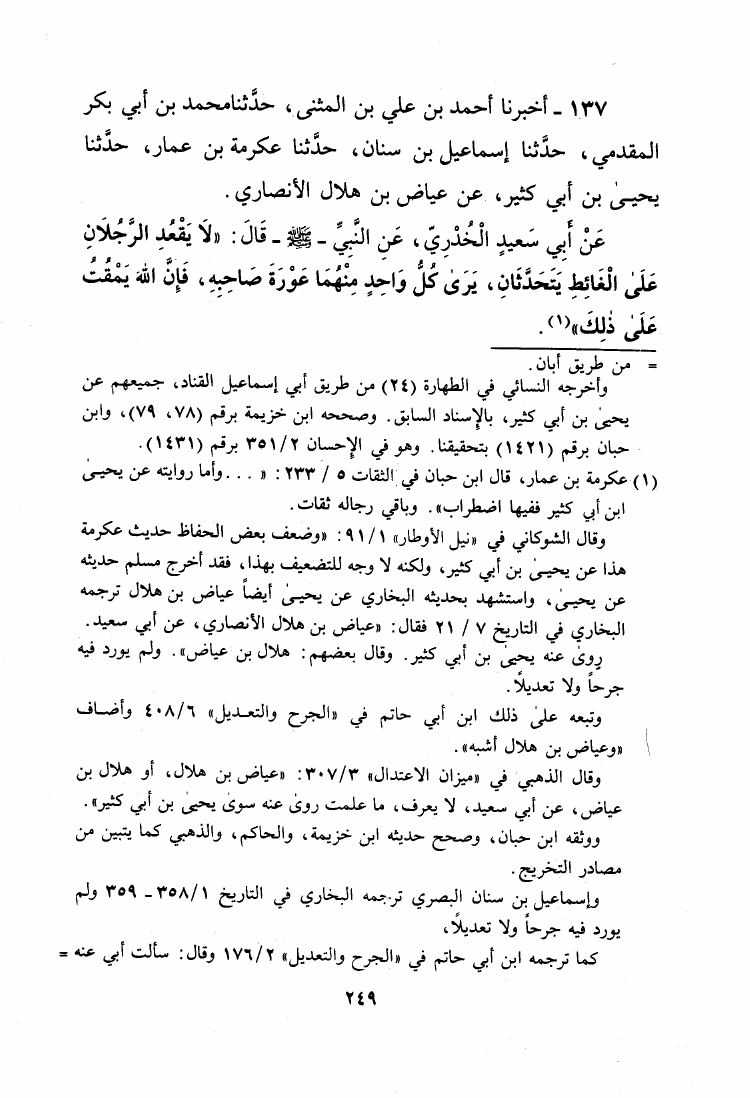 ١٣٧ ـ أخبرنا أحمد بن علي بن المثنى، حدَّثنامحمد بن أبي بكر
المقدمي، حدَّثنا إسماعيل بن سنان، حدَّثنا عكرمة بن عمار، حدَّثنا
يحيىٰ بن أبي كثير، عن عياض بن هلال الأنصاري.
عَنْ أَبي سَعيدٍ الْخُدْرِيِّ، عَنِ النَّبِيِّ ـ ﷺ ـ قَالَ: «لَا يَقْعُدِ الرَّجُلَانِ
عَلَىٰ الْغَائِطِ يَتَحَدَّثَانِ، يَرَىٰ كُلُّ وَاحِدٍ مِنْهُمَا عَوْرَةَ صَاحِبِهِ، فَإِنَّ اللهَ يَمْقُتُ
عَلَىٰ ذٰلِكَ»(١).
= من طريق أبان.
وأخرجه النسائي في الطهارة (٢٤) من طريق أبي إسماعيل القناد، جميعهم عن
يحيىٰ بن أبي كثير، بالإسناد السابق. وصححه ابن خزيمة برقم (٧٨، ٧٩)، وابن
حبان برقم (١٤٢١) بتحقيقنا. وهو في الإحسان ٣٥١/٢ برقم (١٤٣١).
(١) عكرمة بن عمار، قال ابن حبان في الثقات ٥ / ٢٣٣: «...وأما روايته عن يحيىٰ
ابن أبي كثير ففيها اضطراب». وباقي رجاله ثقات.
وقال الشوكاني في «نيل الأوطار» ٩١/١: «وضعف بعض الحفاظ حديث عكرمة
هذا عن يحيىٰ بن أبي كثير، ولكنه لا وجه للتضعيف بهذا، فقد أخرج مسلم حديثه
عن يحيىٰ، واستشهد بحديثه البخاري عن يحيىٰ أيضاً عياض بن هلال ترجمه
البخاري في التاريخ ٧ / ٢١ فقال: «عياض بن هلال الأنصاري، عن أبي سعيد.
روىٰ عنه يحيىٰ بن أبي كثير. وقال بعضهم: هلال بن عياض». ولم يورد فيه
جرحاً ولا تعديلاً.
وتبعه علىٰ ذلك ابن أبي حاتم في «الجرح والتعديل» ٤٠٨/٦ وأضاف
«وعياض بن هلال أشبه».
وقال الذهبي في «ميزان الاعتدال» ٣٠٧/٣: «عياض بن هلال، أو هلال بن
عياض، عن أبي سعيد، لا يعرف، ما علمت روىٰ عنه سوىٰ يحيىٰ بن أبي كثير».
ووثقه ابن حبان، وصحح حديثه ابن خزيمة، والحاكم، والذهبي كما يتبين من
مصادر التخريج.
وإسماعيل بن سنان البصري ترجمه البخاري في التاريخ ٣٥٨/١ ـ ٣٥٩ ولم
يورد فيه جرحاً ولا تعديلاً،
كما ترجمه ابن أبي حاتم في «الجرح والتعديل» ١٧٦/٢ وقال: سألت أبي عنه =
٢٤٩